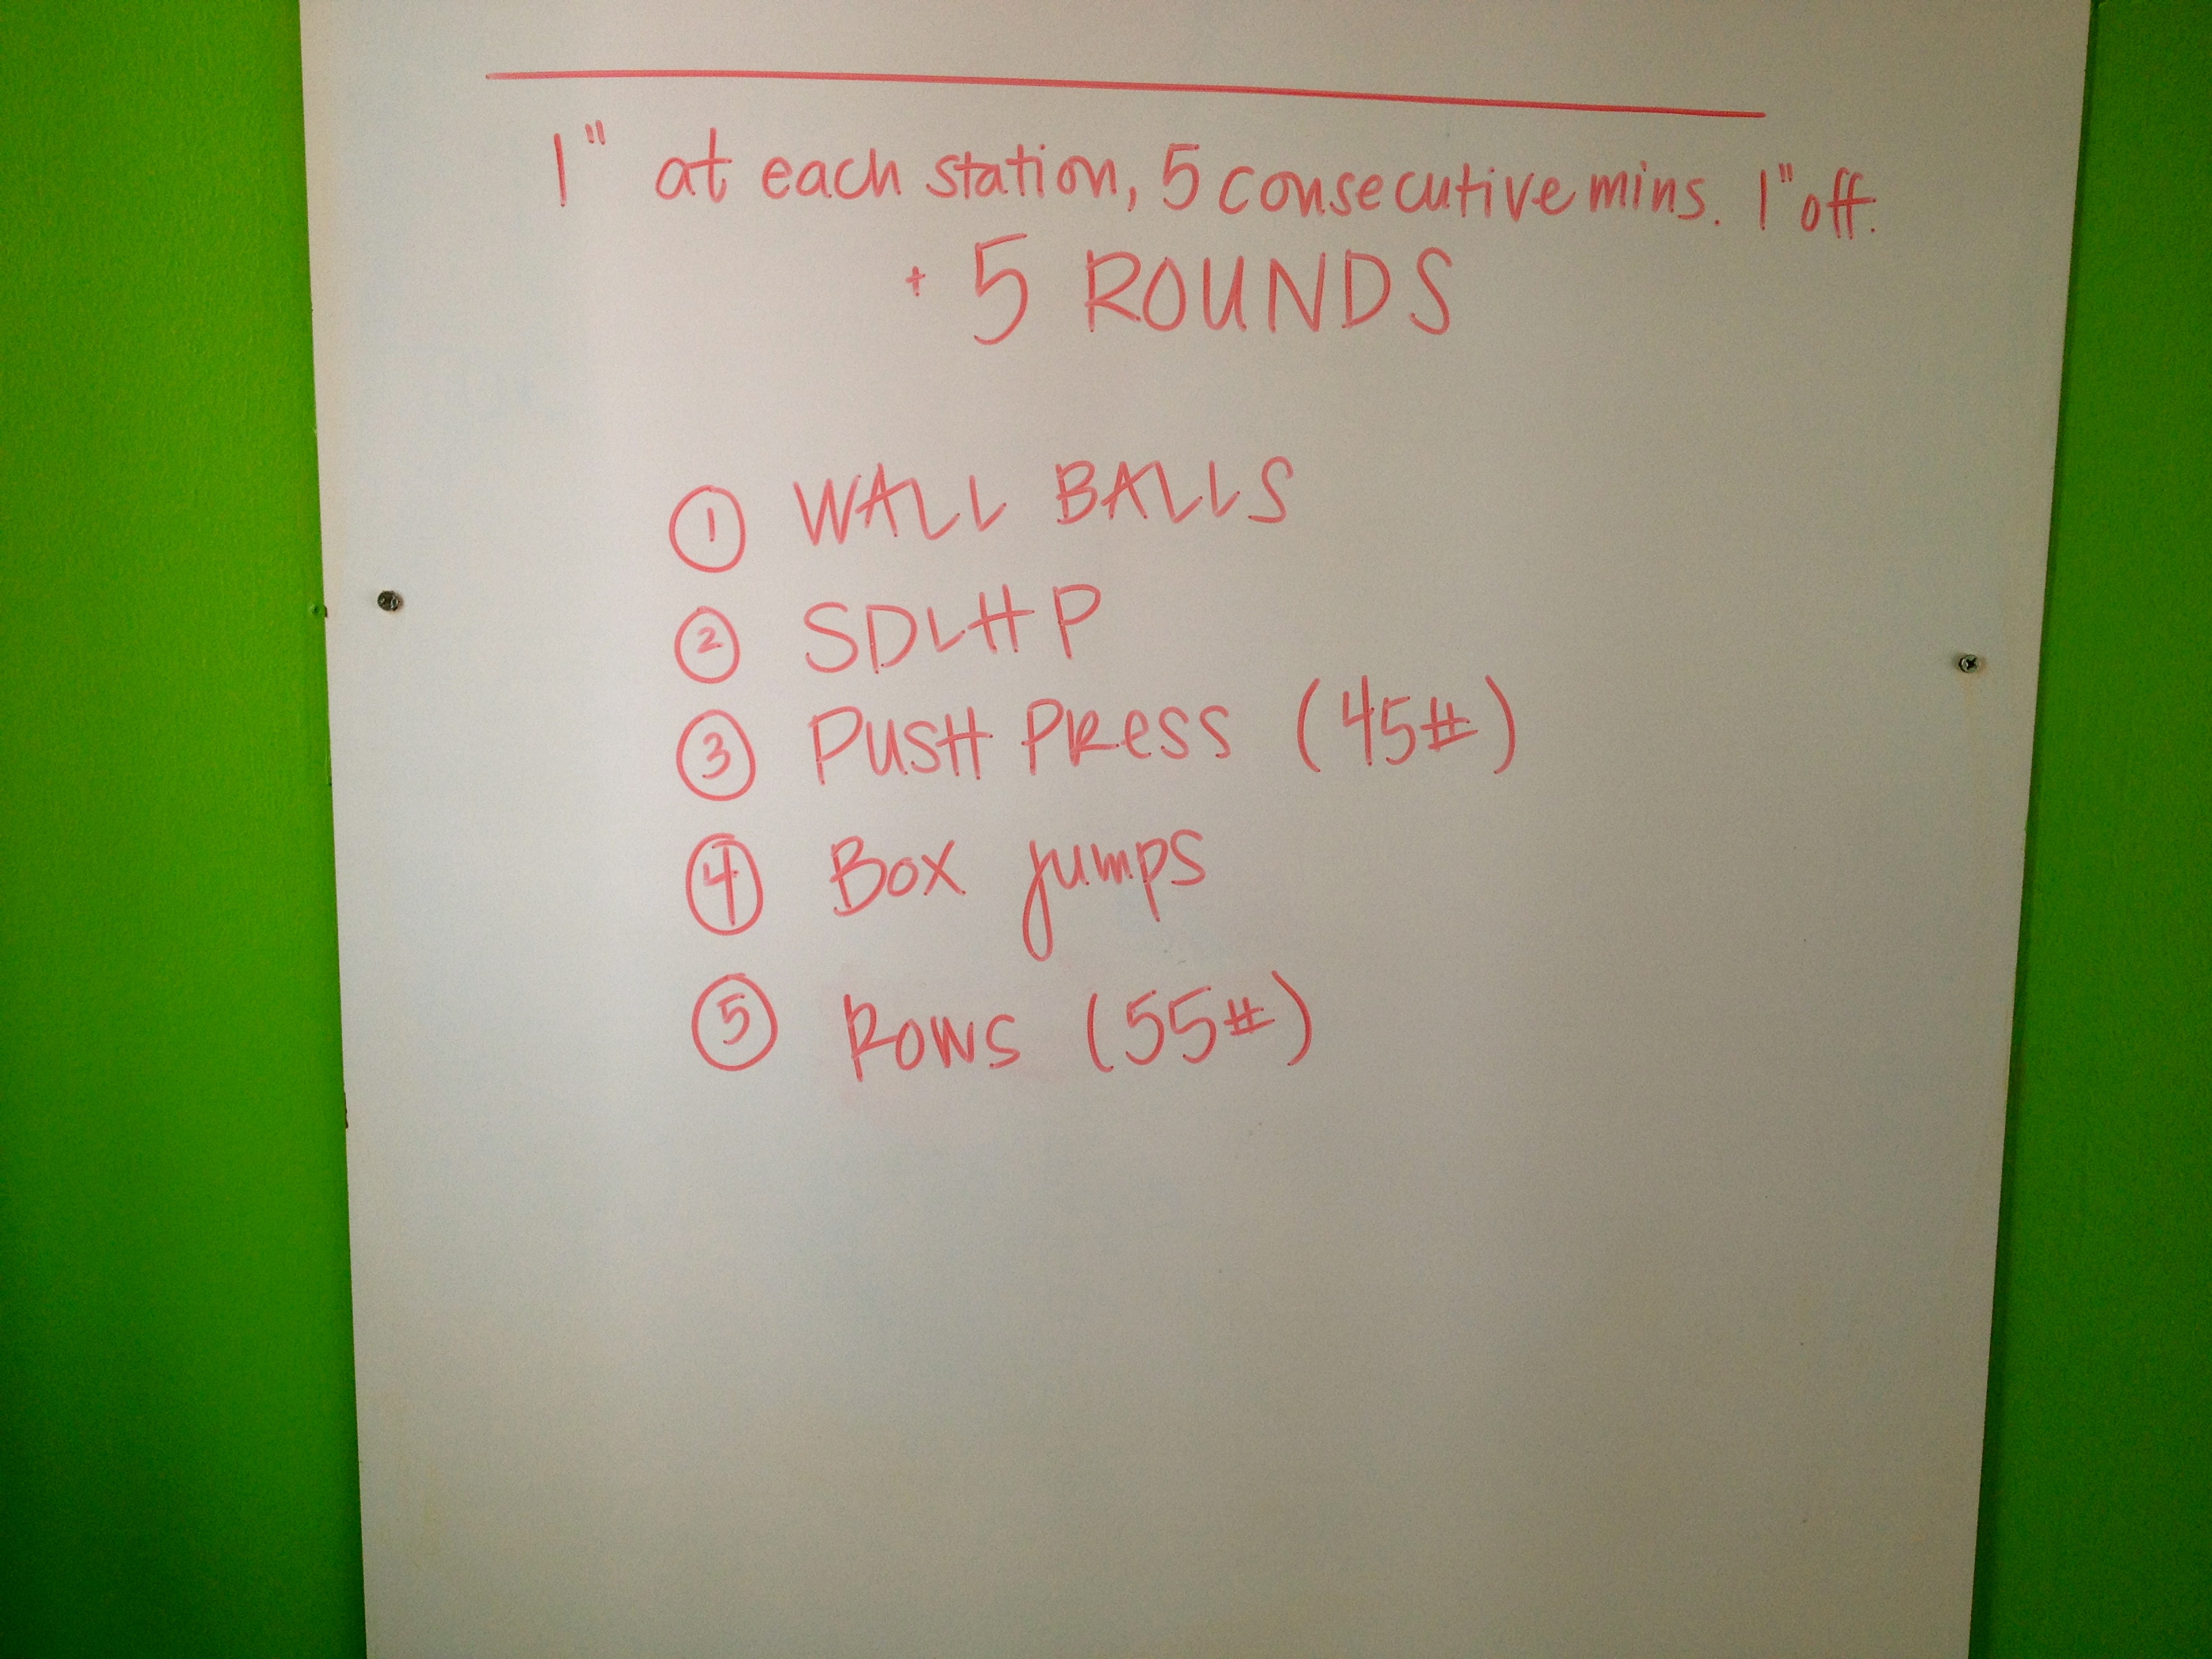 1" at each station, 5 consecutive mins. 1" off.
+ 5 ROUNDS
1 WALL BALLS
2 SDLHP
3 PUSH PRESS (45#)
4 Box jumps
5 Rows (55#)